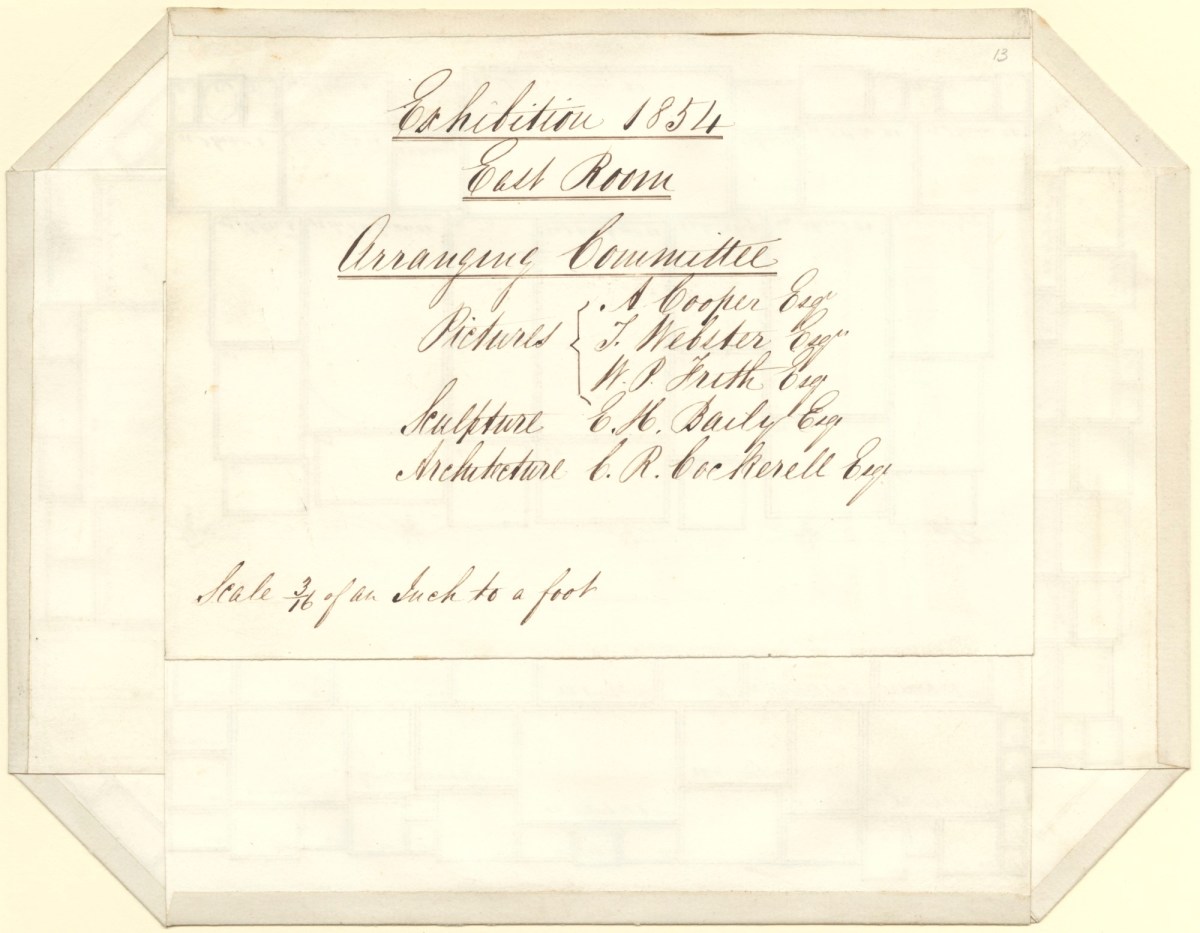 13
Exhibition 1854
East Room
Arranging Committee
Pictures { A. Cooper Esqr
T. Webster Esqr
W. P. Frith Esqr
Sculpture E. H. Baily Esqr
Architecture C. R. Cockerell Esqr
Scale 3/16 of an Inch to a foot